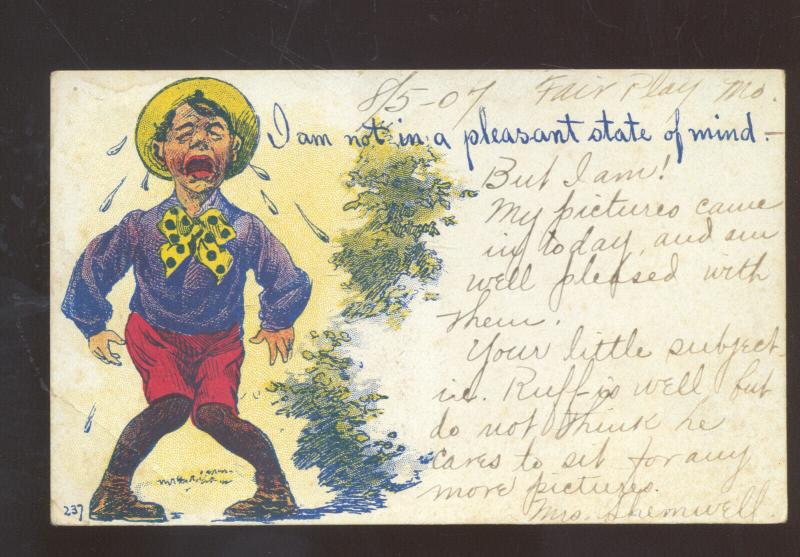 8/5-07 Fair Play Mo.
I am not in a pleasant state of mind.—
But I am!
My pictures came
in today, and am
well pleased with
them.
Your little subject-
i.e. Ruff-is well but
do not think he
cares to sit for any
more pictures.
Mrs. Shemwell.
237